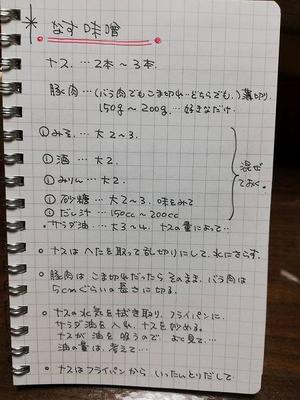 * なす味噌
ナス… 2本〜3本.
豚肉…(バラ肉でもこま切れ…どちらでも.)薄切り.
150g〜200g…好きなだけ.
①みそ… 大2〜3.
①酒… 大2.
①みりん… 大2.
①砂糖… 大2〜3. 味をみて
①だし汁… 150cc〜200cc
混ぜておく.
サラダ油… 大3〜4. ナスの量によって…
○ナスはへたを取って乱切りにして、水にさらす.
○豚肉はこま切れだったらそのまま. バラ肉は
5cmぐらいの長さに切る.
○ナスの水気を拭き取り、フライパンに.
サラダ油を入れ、ナスを炒める.
ナスが油を吸うので よく見て…
油の量は、考えて…
○ナスはフライパンから いったんとりだして